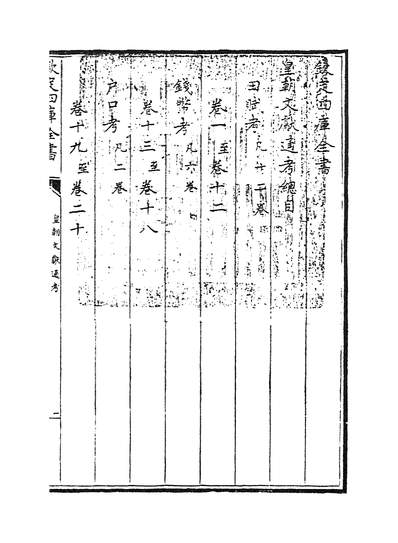 欽定四庫全書
皇朝文獻通考總目
田賦考凡十二卷
卷一至卷十二
錢幣考凡六卷
卷十三至卷十八
户口考凡二卷
卷十九至卷二十
欽定四庫全書
皇朝文獻通考
二